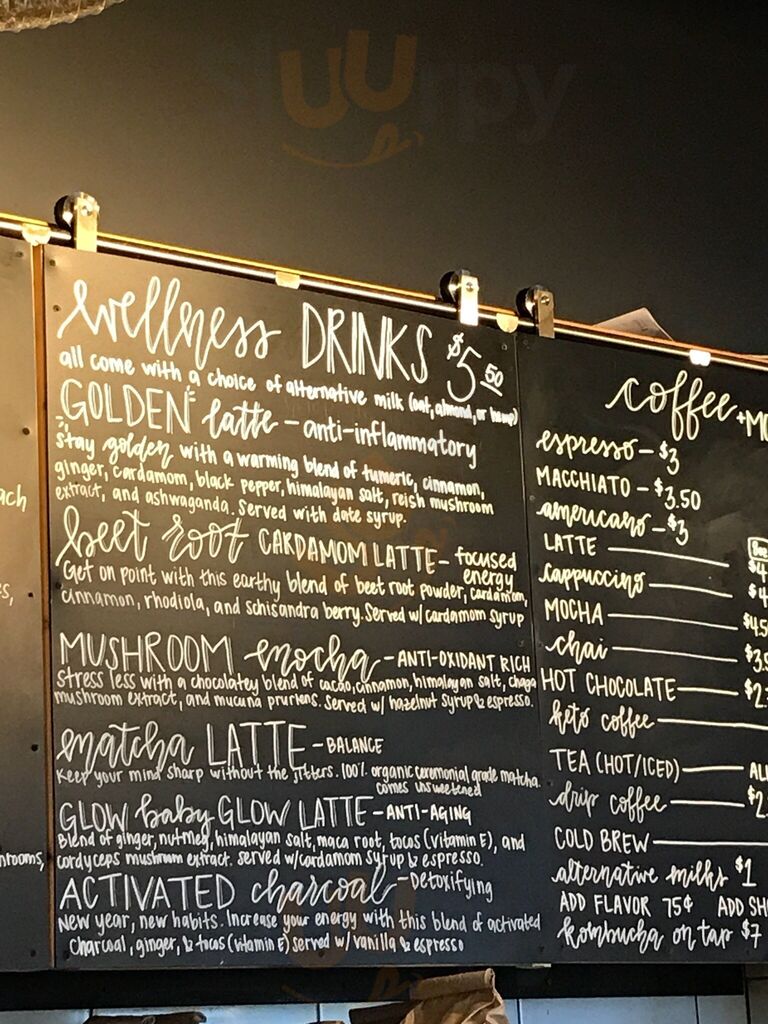 sluurpy
wellness DRINKS $5.50
all come with a choice of alternative milk (oat, almond, or hemp)
GOLDEN latte - anti-inflammatory
stay golden with a warming blend of tumeric, cinnamon,
ginger, cardamom, black pepper, himalayan salt, reish mushroom
extract, and ashwaganda. Served with date syrup.
beet root CARDAMOM LATTE - focused
energy
Get on point with this earthy blend of beet root powder, cardamom,
cinnamon, rhodiola, and schisandra berry. Served w/ cardamom syrup
MUSHROOM mocha - ANTI-OXIDANT RICH
stress less with a chocolatey blend of cacao, cinnamon, himalayan salt, chaga
mushroom extract, and mucuna pruriens. Served w/ hazelnut syrup & espresso.
matcha LATTE - BALANCE
Keep your mind sharp without the jitters. 100% organic ceremonial grade matcha.
comes unsweetened
GLOW baby GLOW LATTE - ANTI-AGING
Blend of ginger, nutmeg, himalayan salt, maca root, tocos (vitamin E), and
cordyceps mushroom extract. served w/cardamom syrup & espresso.
ACTIVATED charcoal - Detoxifying
New year, new habits. Increase your energy with this blend of activated
charcoal, ginger, & tocos (vitamin E) served w/ vanilla & espresso
coffee + MO
espresso - $3
MACCHIATO - $3.50
americano - $3
LATTE $4
cappuccino $4
MOCHA $4.5
chai $3.5
HOT CHOCOLATE $2.
keto coffee
TEA (HOT/ICED) ALL
drip coffee $2.
COLD BREW
alternative milks $1
ADD FLAVOR 75¢ ADD SH
kombucha on tap $7
ach
s,
hrooms,